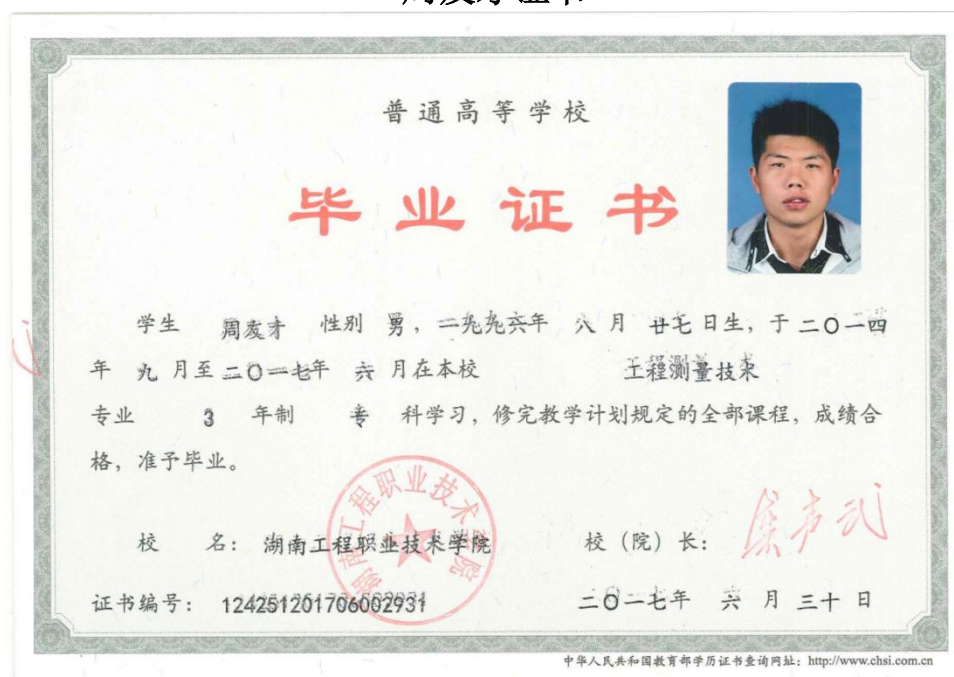 普通高等学校
毕业证书
学生 周友才 性别 男，一九九六年 八 月 廿七 日生，于 二〇一四
年 九 月至 二〇一七年 六 月在本校 工程测量技术
专业 3 年制 专 科学习，修完教学计划规定的全部课程，成绩合
格，准予毕业。
湖南工程职业技术学院
校 名：湖南工程职业技术学院 校（院）长：
证书编号：124251201706002931 二〇一七年 六 月 三十 日
中华人民共和国教育部学历证书查询网址：http://www.chsi.com.cn